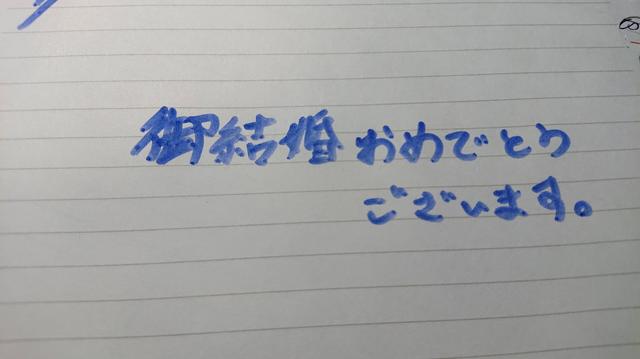 御結婚おめでとう
ございます。